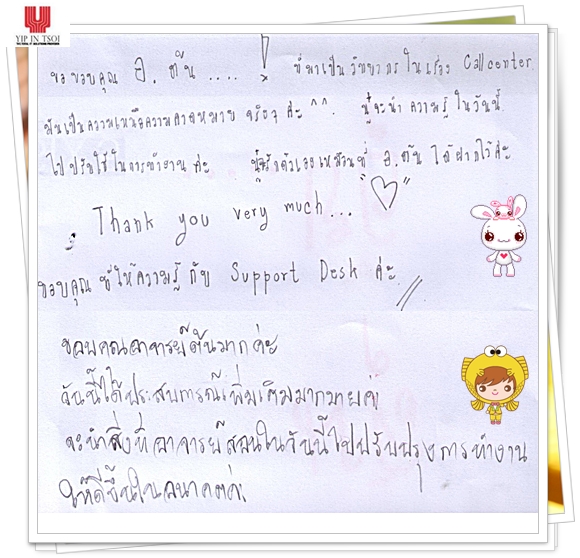 YIP IN TSOI
ขอขอบคุณ อ. ตัน .... ! ที่มาเป็นวิทยากรในเรื่อง Callcenter
มันเป็นความเหนือความคาดหมาย จริงๆ ค่ะ ^^. นู๋จะนำ ความรู้ ในวันนี้
ไป ปรับใช้ ในการทำงาน ค่ะ นู๋รักตัวเองเหมือนที่ อ.ตัน ได้ฝากไว้ค่ะ
Thank you very much...
ขอบคุณ ที่ให้ความรู้ กับ Support Desk ค่ะ
ขอบคุณอาจารย์ตันมากค่ะ
วันนี้ได้ประสบการณ์เพิ่มเติมมากมายค่ะ
จะนำสิ่งที่อาจารย์สอนในวันนี้ไปปรับปรุงการทำงาน
ให้ดีขึ้นในอนาคตค่ะ